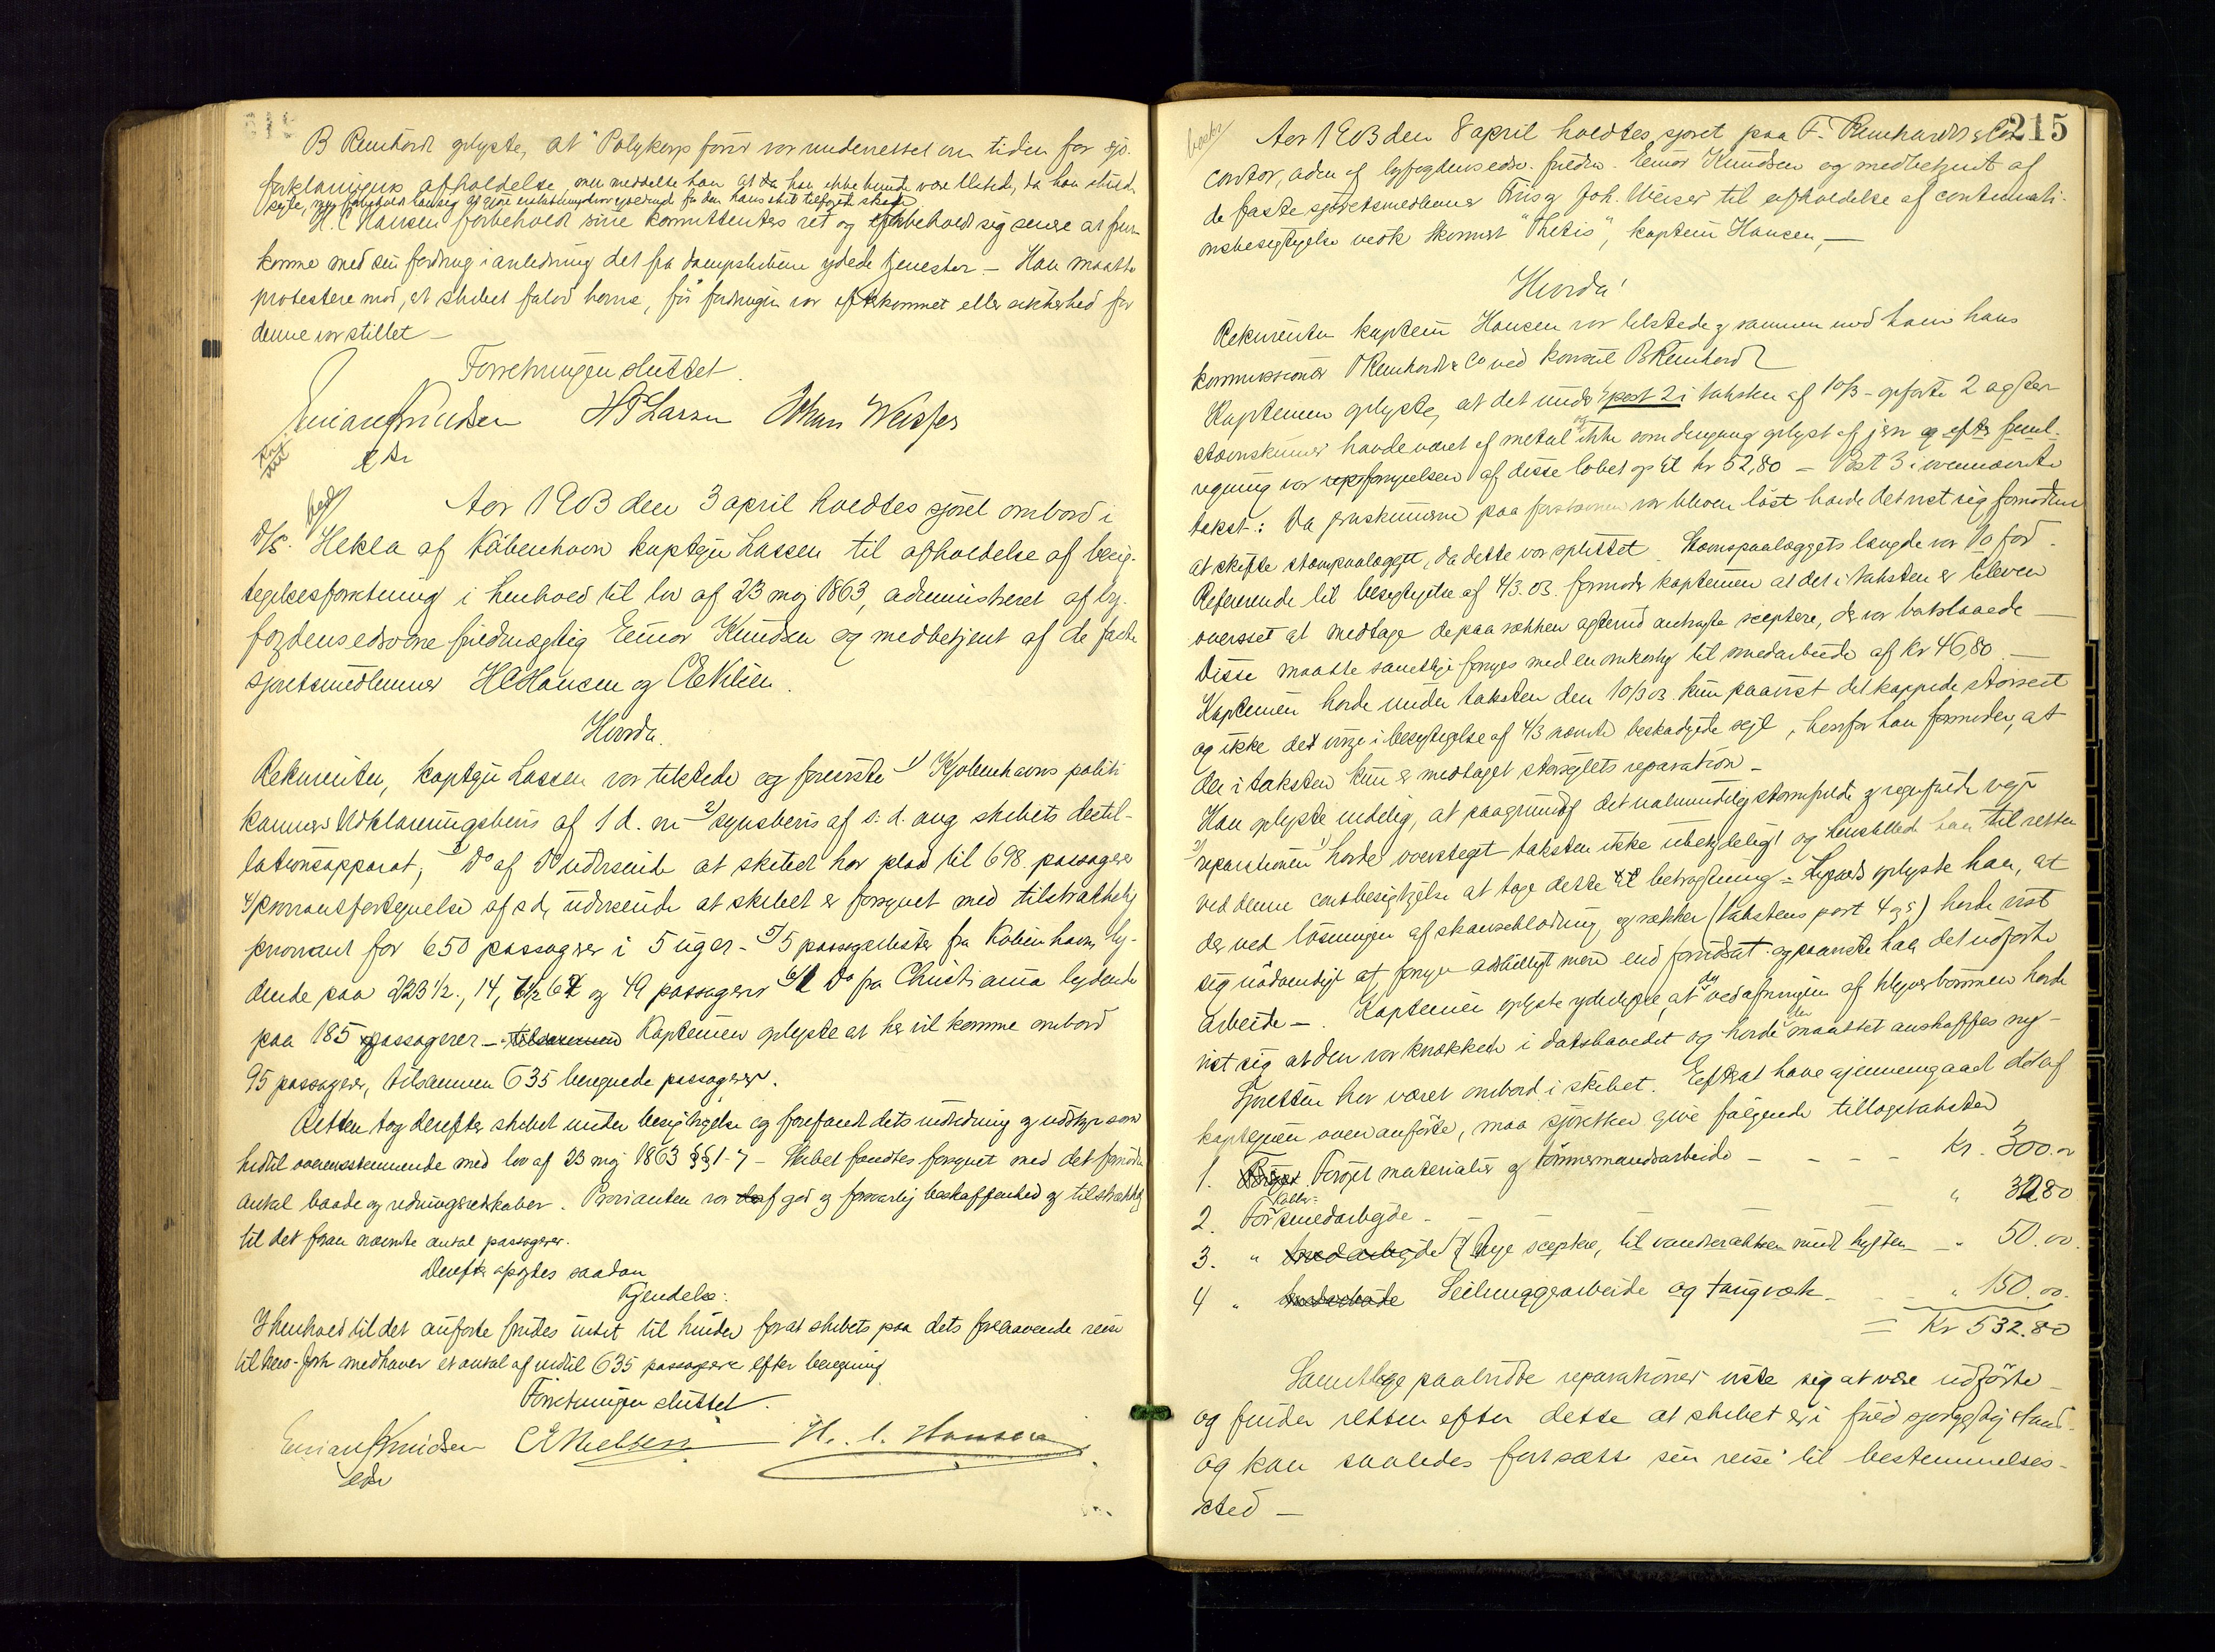 B Reinhardt oplyste, at "Polykarps fører var underrettet om tiden for sjø-
forklaringens afholdelse, men meddelte han at da han ikke kunde være tilstede, da han skulde
seile, men forbeholdt han sig at gjøre erstatningskrav gjeldende for den hans skib tilføiede skade
H. C Hansen forbeholdt sine kommittenters ret og forbeholdt sig senere at frem-
komme med sin fordring i anledning det fra dampskibene ydede tjenester. — Han maatte
protestere mod, at skibet forlod havnen, før fordringen var efterkommet eller sikkerhed for
denne var stillet —
Forretningen sluttet.
Einar Knudsen H P Larsen Johan Weisser
Aar 1903 den 3 april holdtes sjøret ombord i
D/S. Hekla af København kaptejn Lassen til afholdelse af besig-
tigelsesforretning i henhold til lov af 23 maj 1863, administreret af by-
fogdens edsvorne fuldmægtig Einar Knudsen og medbetjent af de faste
sjøretsmedlemmer H C Hansen og C E Nilsen.
Hvorda.
Rekvirenten, kaptejn Lassen var tilstede og foreviste 1) Kjøbenhavns politi
kammers Udklareringsbevis af 1 d. m 2) synsbevis af s. d. ang skibets destil-
lationsapparat, 3) Do af Do udvisende at skibet har plads til 698 passagerer
4) proviantfortegnelse af s d, udvisende at skibet er forsynet med tilstrækkelig
proviant for 650 passagerer i 5 uger - 5) 5 passagerlister fra København, ly-
dende paa 223 1/2, 14, 67 og 49 passagerer 6) 1 Do fra Christiania lydende
paa 185 passagerer — tilsammen Kapteinen oplyste at her vil komme ombord
95 passagerer, tilsammen 635 beregnede passagerer.
Retten tog derefter skibet under besigtigelse og forefandt dets indredning og udstyr som
hidtil overensstemmende med lov af 23 maj 1863 §§ 1-7 — Skibet fandtes forsynet med det fornødne
antal baade og redningsredskaber. Provianten var af god og forsvarlig beskaffenhed og tilstrækkelig
til det foran nævnte antal passagerer.
Derefter afsagdes saadan
Kjendelse:
I henhold til det anførte findes intet til hinder for at skibet paa dets forehavende reise
til New-York medhaver et antal af indtil 635 passagerer efter beregning
Forretningen sluttet.
Einar Knudsen C E Nielsen H. C. Hansen
edsv
215
Aar 1903 den 8 april holdtes sjøret paa F. Reinhardt & Cos
contor, adm af byfogdens edsv. fuldm. Einar Knudsen og medbetjent af
de faste sjøretsmedlemmer Friis og Joh. Weiser til afholdelse af continuati-
onsbesigtigelse vedk skonnert "Thetis", kaptein Hansen, —
Hvorda!
Rekvirenten kaptein Hansen var tilstede og sammen med ham hans
kommissionær F Reinhardt & Co ved konsul B Reinhardt
Kapteinen oplyste, at det under post 2 i taksten af 10/3 - opførte 2 agter
stevnskinner havde været af metal og ikke som dengang oplyst af jern og efter frem-
regning var fornyelsen af disse løbet op til kr 52,80 — Post 3 i ovennævnte
takst: Da jernskinnerne paa forstevnen var bleven løst havde det vist sig fornødent
at skifte stevnpaalægget, da dette var splittet. Stevnpaalæggets længde var 10 fod.
Refererende til besigtigelse af 4/3. 03. formoder kapteinen at det i taksten er bleven
overset at medtage de paa rækken agterud anbragte sceptere, der var bortslaaede —
Disse maatte samtlige fornyes med en omkostng til smedarbeide af kr 46,80. —
Kapteinen havde under taksten den 10/3 03 kun paavist det kappede storseil
og ikke det øvrige i besigtigelse af 4/3 nævnte beskadigede sejl, hvorfor han formoder, at
der i taksten kun er medtaget storsejlets reparation —
Han oplyste endelig, at paagrund af det ualmindelig stormfulde og regnfulde vejr
reparationen havde oversteget taksten ikke ubetydeligt og henstilled han til retten
ved denne contbesigtigelse at tage dette til betragtning — Ligeledes oplyste han, at
der ved løsningen af skanseklædning, og rækker (takstens post 4 og 5) havde vist
sig nødvendigt at fornye adskilligt mere end forudsat og paaviste han det udførte
arbeide —. Kapteinen oplyste yderligere, at der ved afringen af klyverbommen havde
vist sig at den var knækket i dækshovedet og havde den maattet anskaffes ny —
Sjøretten har været ombord i skibet. Efterat have gjennemgaaet det af
kapteinen ovenanførte, maa sjøretten give følgende tillægstaksten
1. Forøget materialier og tømmermandsarbeide — — — Kr. 300.00
2. For smedarbejde — — — " 32.80
3. " smedarbejde 7 nye sceptre, til vandrækken rundt hytten — " 50.00.
4 " Seilmagerarbeide og taugværk — — " 150.00.
= Kr 532.80
Samtlige paabudte reparationer viste sig at være udførte
og finder retten efter dette at skibet er i fuld sjødygtig stand
og kan saaledes fortsætte sin reise til bestemmelses-
sted —